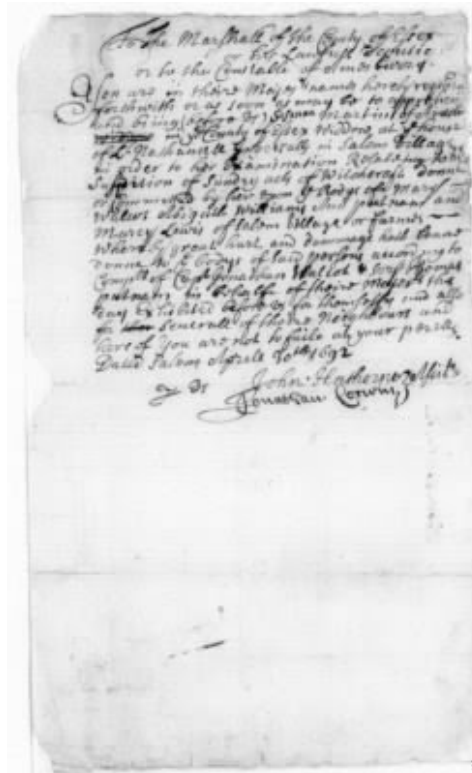 To the Marshall of the County of Essex
or his Lawfull Deputie
or to the Constable of Amesbury.
You are in theire Majests names hereby required
forthwith or as soon as may be to apprehend
and bring before us Susanna Martin of
in ye County of Essex Widdow at ye house
of Lt Nathaniell Ingersalls in Salem Village
in order to her Examination Relateing to
Suspition of Sundry acts of Witchcraft donne
or Committed by her upon ye Bodys of Mary
Walcot Abigail Williams Ann putnam and
Marcy Lewis of Salem Village or farmes
Whereby great hurt and dammage hath beene
donne to ye bodys of said persons according to
Complt of Capt Jonathan Walcot & Serg Thomas
putnam in behalfe of theire Majests this
day Exhibited before us for themselfes and also
for Severall of theire Neighbours and
here of You are not to faile at your perills
Dated Salem Aprill 30th 1692
John Hathorne
Jonathan Corwin